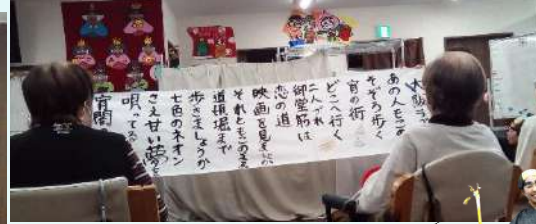 大阪ラ
あの人もこの
そぞろ歩く
宵の街
どこへ行く
二人づれ
御堂筋は
恋の道
映画を見ましょか
それともこのまま
道頓堀まで
歩きましょうか
七色のネオン
さえ甘い夢を
唄ってる
宵闇